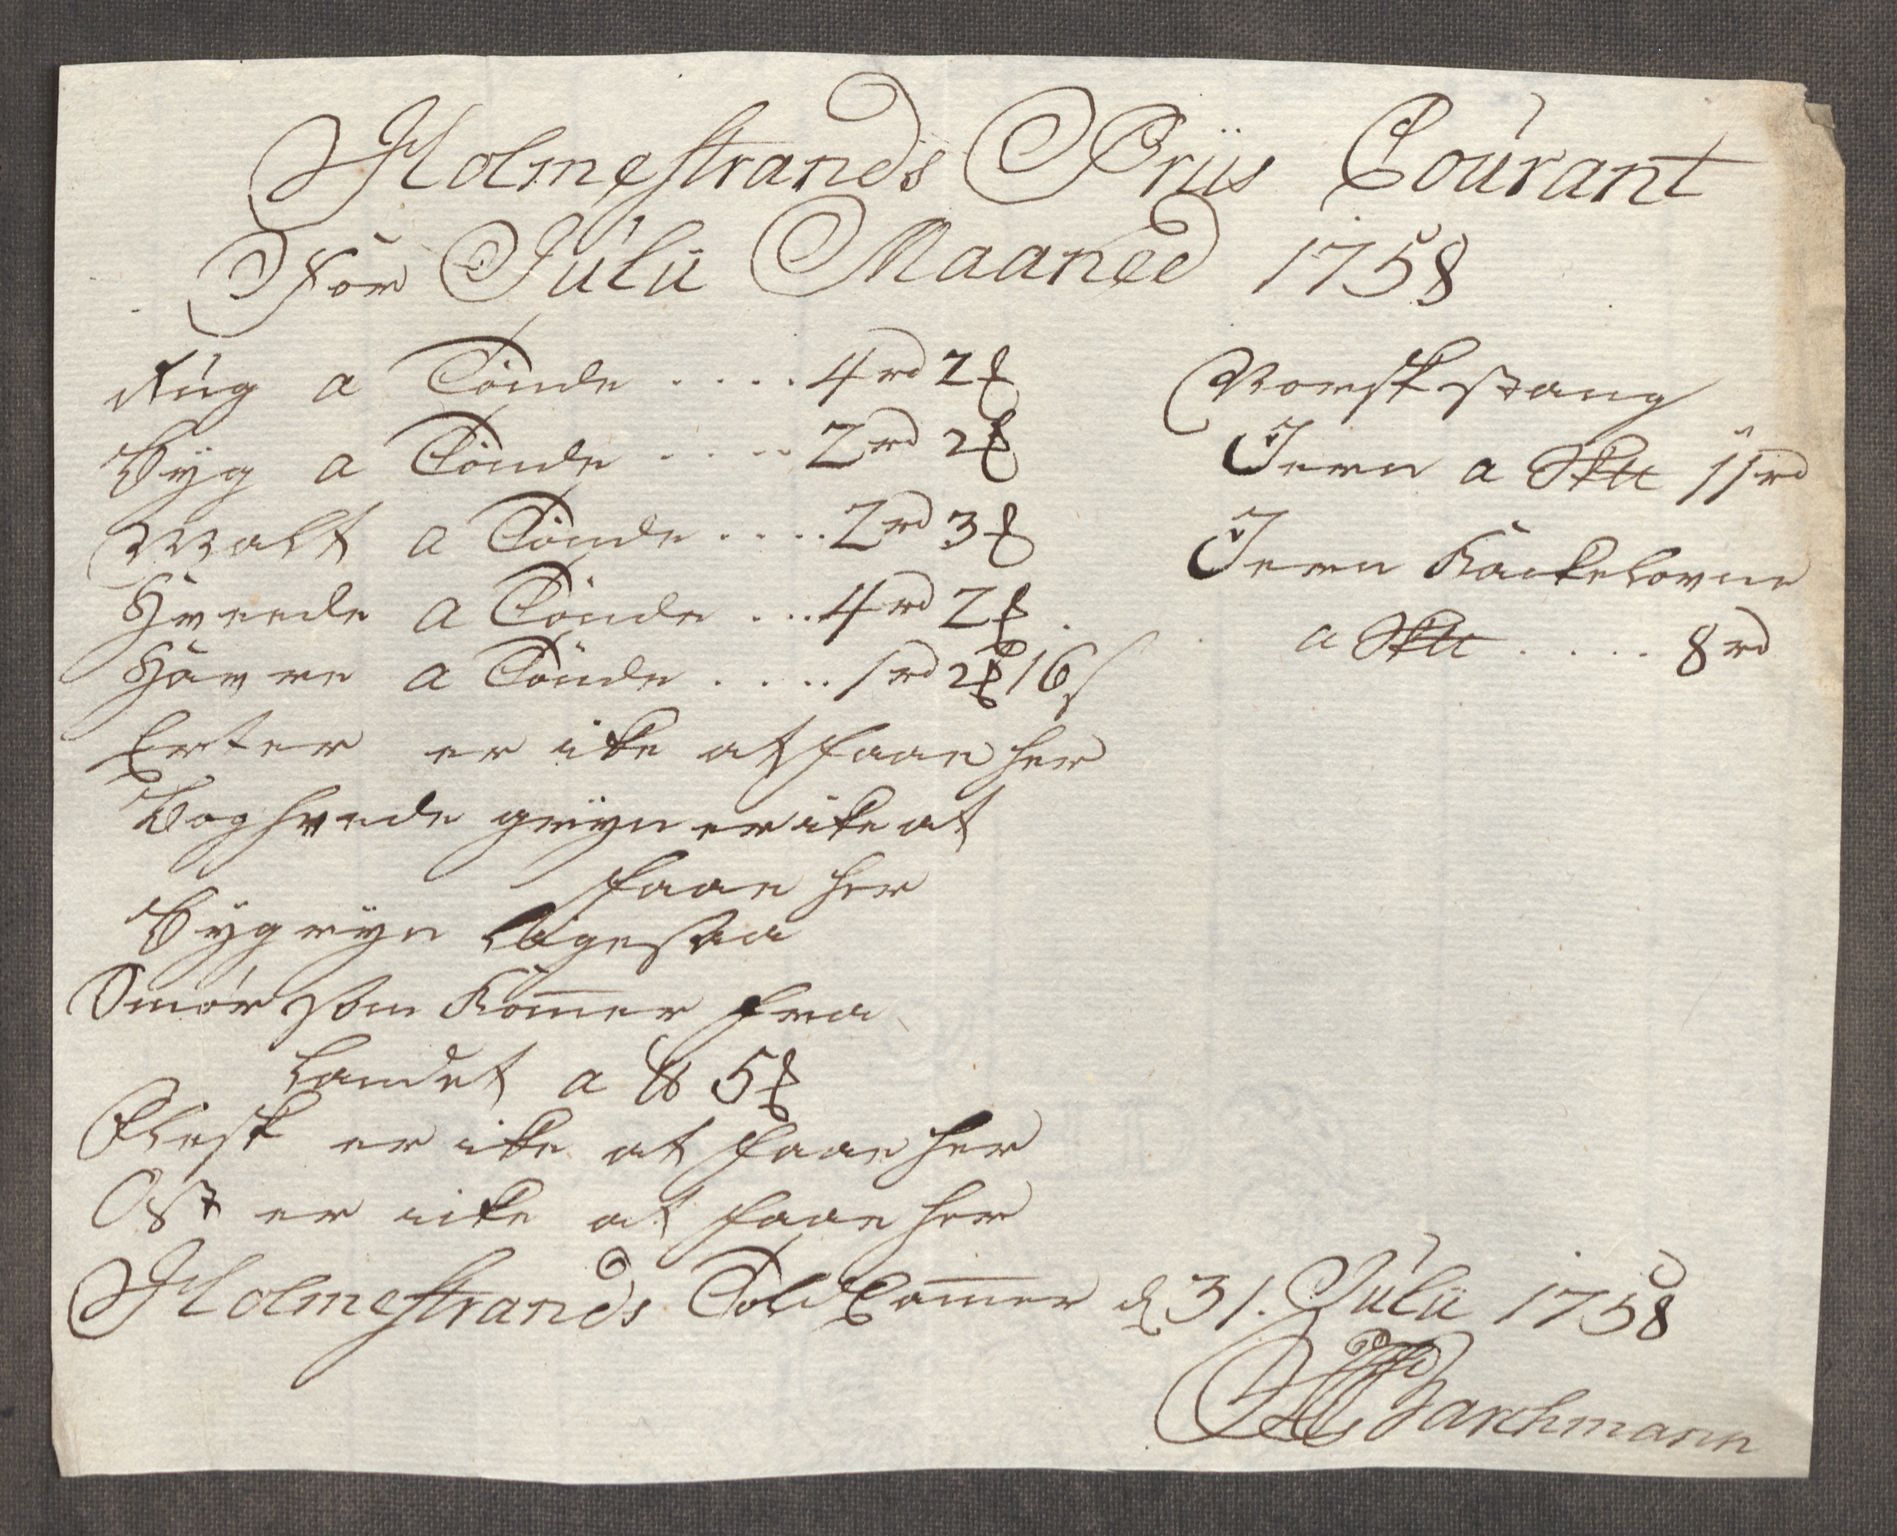 Holmestrands Priis Courant
For Julii Maaned 1758
Rug a Tönde . . . . 4 rd 2 ß
Byg a Tönde . . . . 2 rd 2 ß
Malt a Tönde . . . . 2 rd 3 ß
Hveede a Tönde . . . 4 rd 2 ß .
Havre a Tönde . . . . 1 rd 2 ß 16 s
Erter er ike at faae her
Boghvede gryn er ike at
faae her
Byg gryn ligesaa
Smör som Kom̅er fra
Landet a ℔ 5 ß
Flesk er ike at faae her
Ost er icke at faae her
Norsk stang
Jern a Sk℔ 11 rd
Jern Kackelovne
a Sk℔ . . . . . 8 rd
Holmestrands Told Cam̅er d 31. Julii 1758
Barchmann